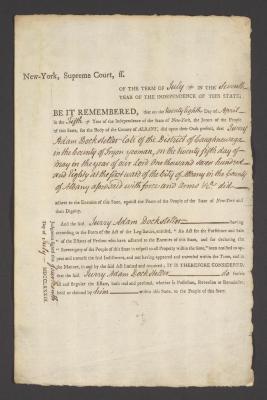 New-York, Supreme Court, ss.
OF THE TERM OF July IN THE Seventh
YEAR OF THE INDEPENDENCE OF THIS STATE;
BE IT REMEMBERED, that on the twenty eighth Day of April
in the Sixth Year of the Independence of the State of New-York, the Jurors of the People
of this State, for the Body of the County of ALBANY, did upon their Oath present, that Jurry
Adam Dockstetter late of the District of Caughnawaga
in the County of Tryon yeoman, on the twenty fifth day of
may in the year of our Lord one thousand seven hundred
and eighty at the first ward of the City of Albany in the County
of Albany aforesaid with force and Arms &c. did
adhere to the Enemies of this State, against the Peace of the People of the State of New-York and
their Dignity.
And the said Jurry Adam Dockstetter having
according to the Form of the Act of the Legislature, entitled, "An Act for the Forfeiture and Sale
" of the Estates of Persons who have adhered to the Enemies of this State, and for declaring the
" Sovereignty of the People of this State in respect to all Property within the same," been notified to ap-
pear and traverse the said Indictment, and not having appeared and traversed within the Time, and in
the Manner, in and by the said Act limited and required; IT IS THEREFORE CONSIDERED,
that the said Jurry Adam Dockstetter do forfeit
all and singular the Estate, both real and personal, whether in Possession, Reversion or Remainder,
held or claimed by him within this State, to the People of this State.
Judgment signed this
Day of July MDCCLXXXIII.